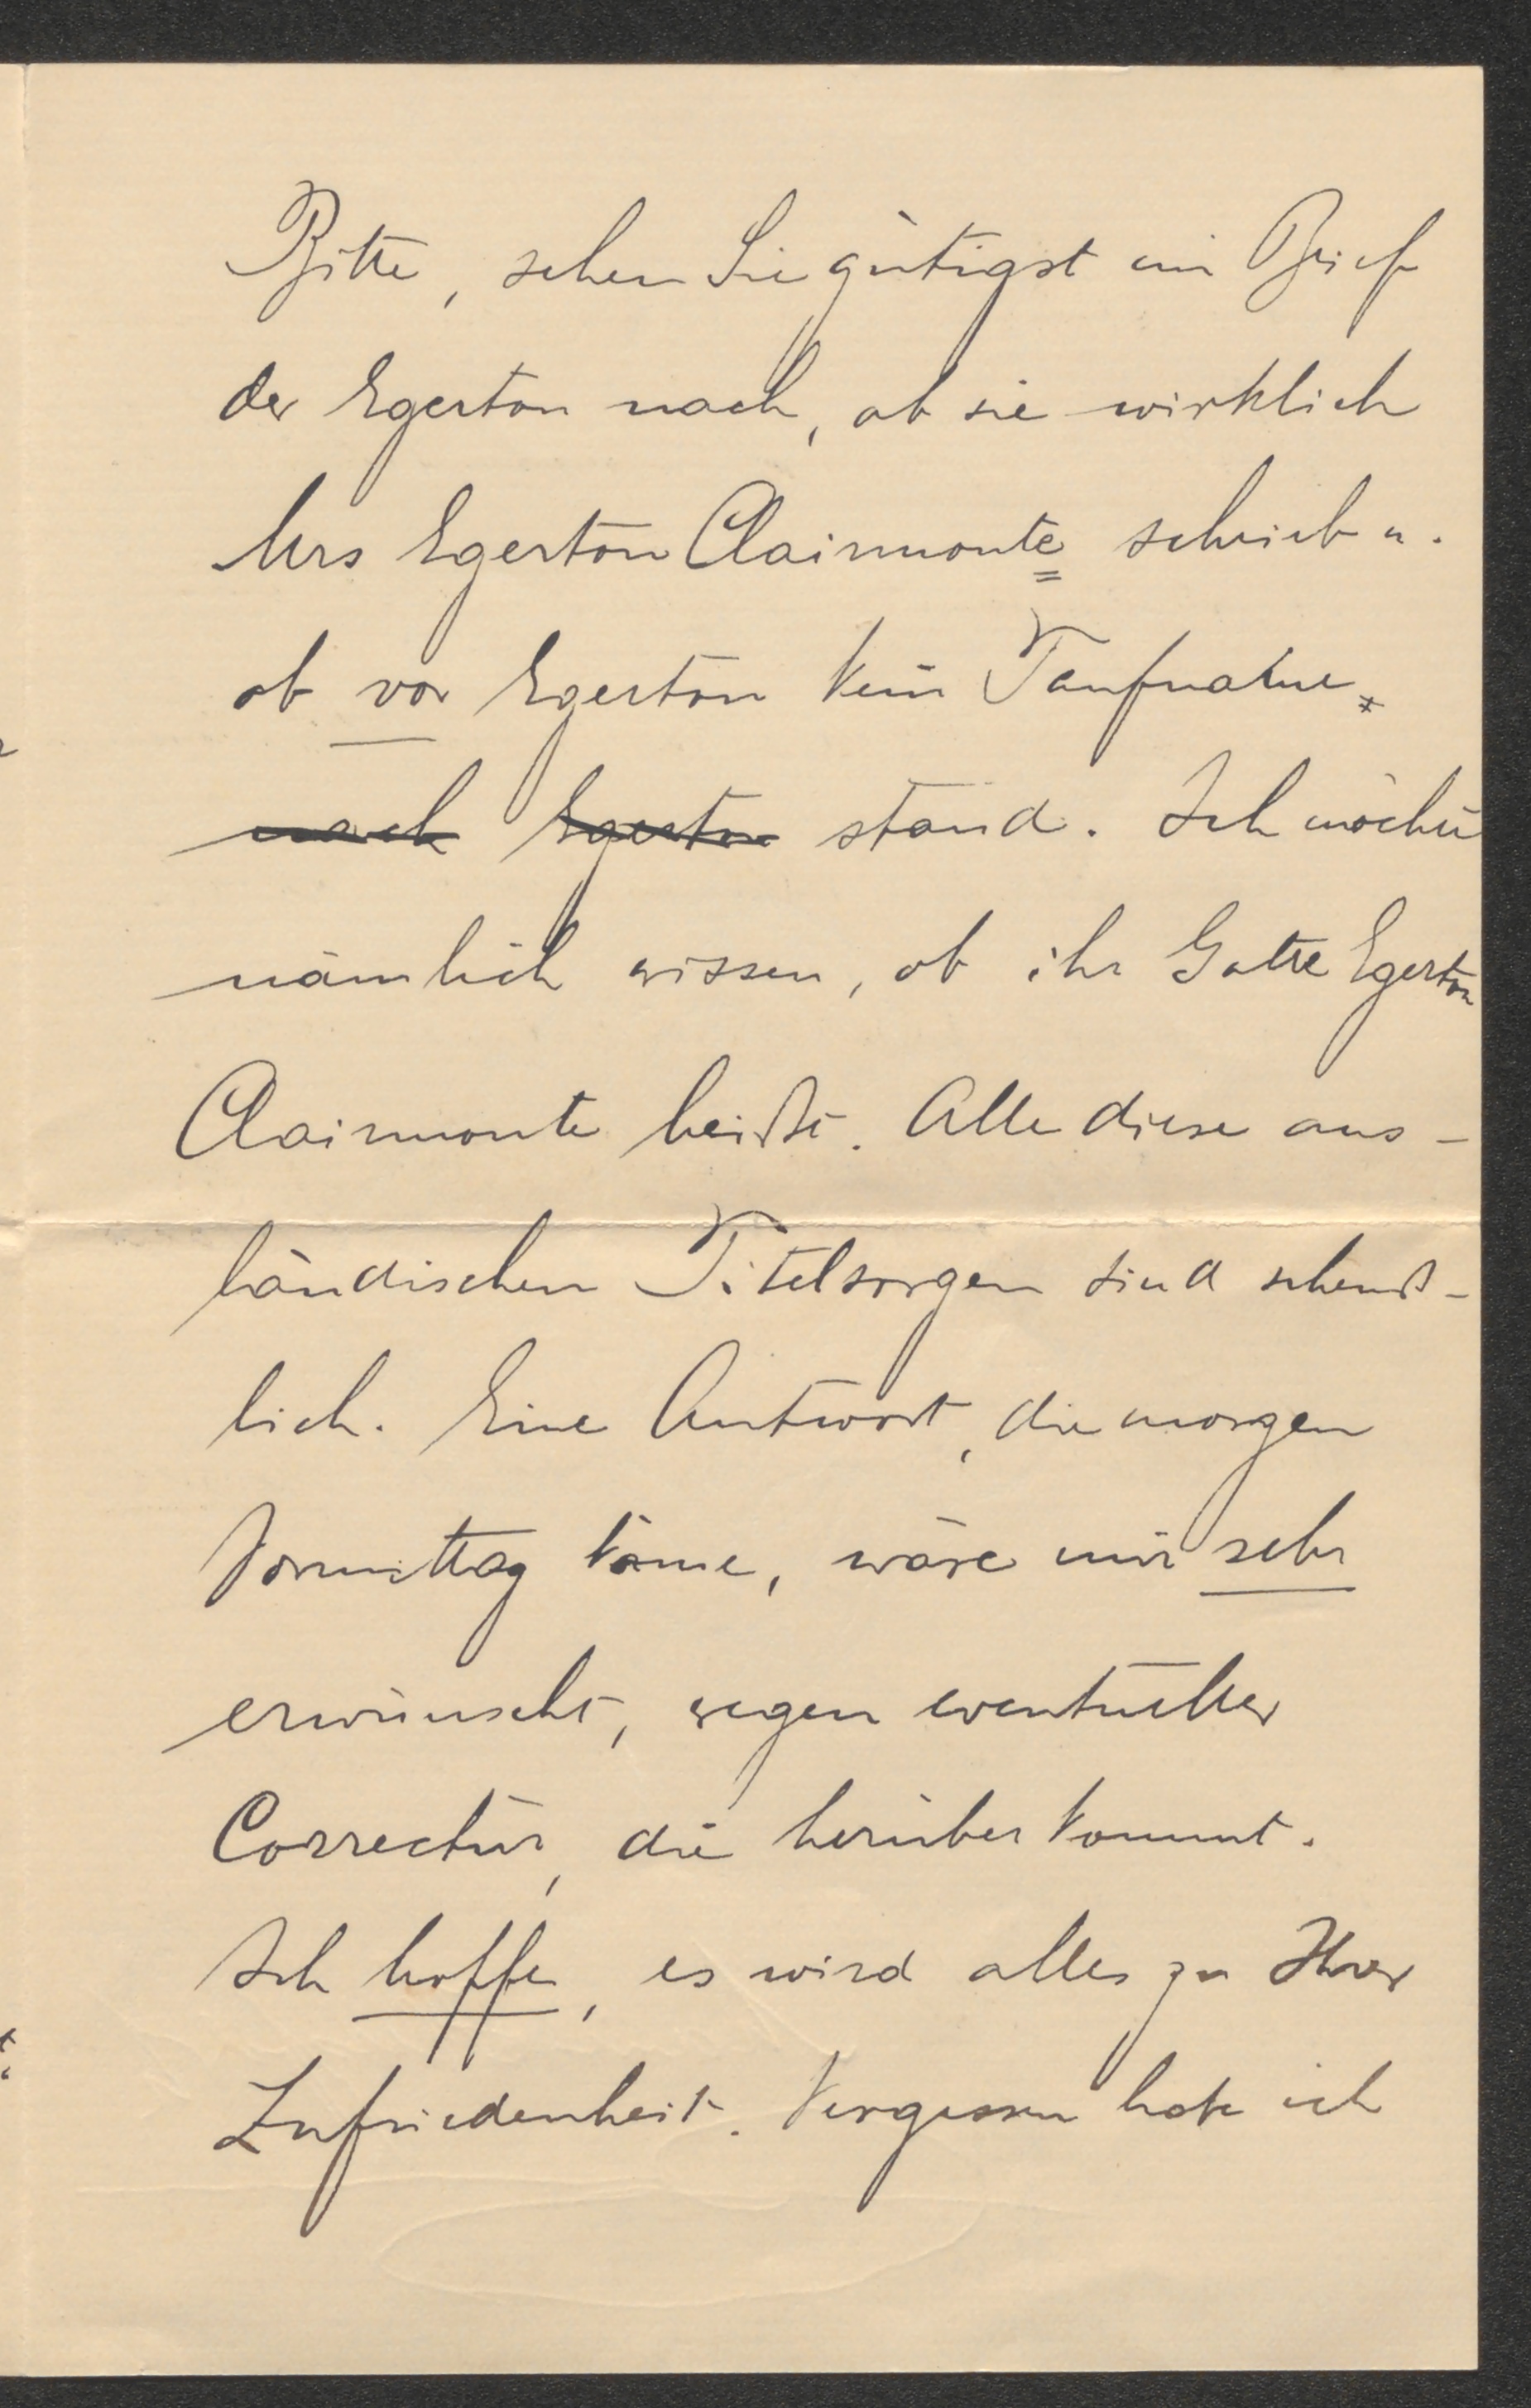 Bitte, sehen Sie gütigst im Brief
der Egerton nach, ob sie wirklich
Mrs Egerton Clairmonte schrieb u.
ob vor Egerton kein Taufname
nach Egerton stand. Ich möchte
nämlich wissen, ob ihr Gatte Egerton
Clairmonte heißt. Alle diese aus-
ländischen Titelsorgen sind scheuß-
lich. Eine Antwort, die morgen
Vormittag käme, wäre mir sehr
erwünscht, wegen eventueller
Correctur, die herüber kommt.
Ich hoffe, es wird alles zu Ihrer
Zufriedenheit. Vergessen habe ich